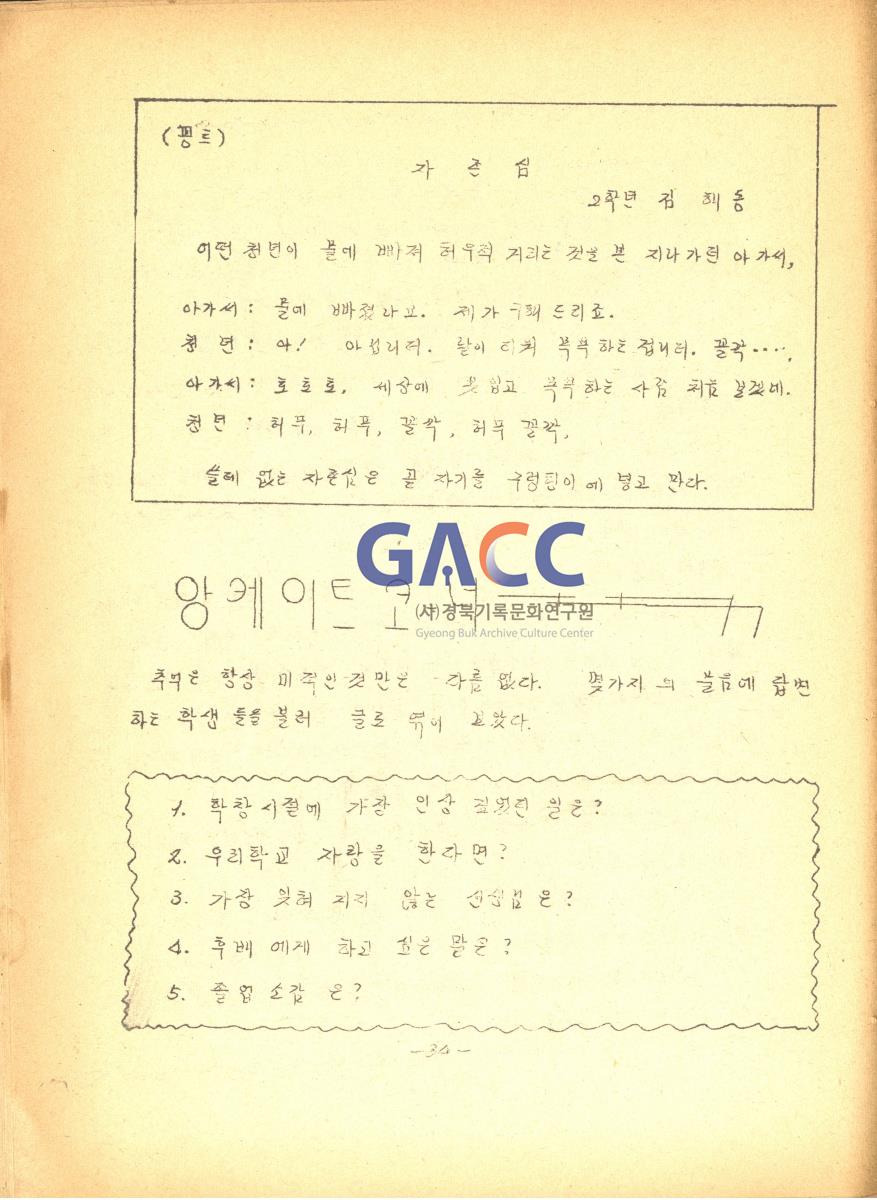 (꽁트)
자 존 심
2학년 김 해 동
어떤 청년이 물에 빠져 허우적 거리는 것을 본 지나가던 아가씨,
아가씨 : 물에 빠졌나요. 제가 구해 드리죠.
청 년 : 아! 아닙니다. 날이 더워 목욕하는 겁니다. 꼴깍····,
아가씨 : 호호호, 세상에 옷입고 목욕하는 사람 처음 보겠네.
청 년 : 허푸, 허푸, 꼴깍, 허푸 꼴깍,
쓸데 없는 자존심은 곧 자기를 구렁텅이 에 넣고 만다.
GACC
(사)경북기록문화연구원
Gyeong Buk Archive Culture Center
앙케이트 코너
추억은 항상 미적인 것만은 다름 없다. 몇가지 의 물음에 답변
하는 학생 들을 불러 글로 엮어 보았다.
1. 학창시절에 가장 인상 깊었던 일은?
2. 우리학교 자랑을 한다면?
3. 가장 잊혀 지지 않는 선생님 은?
4. 후배 에게 하고 싶은 말은?
5. 졸업 소감 은?
-34-